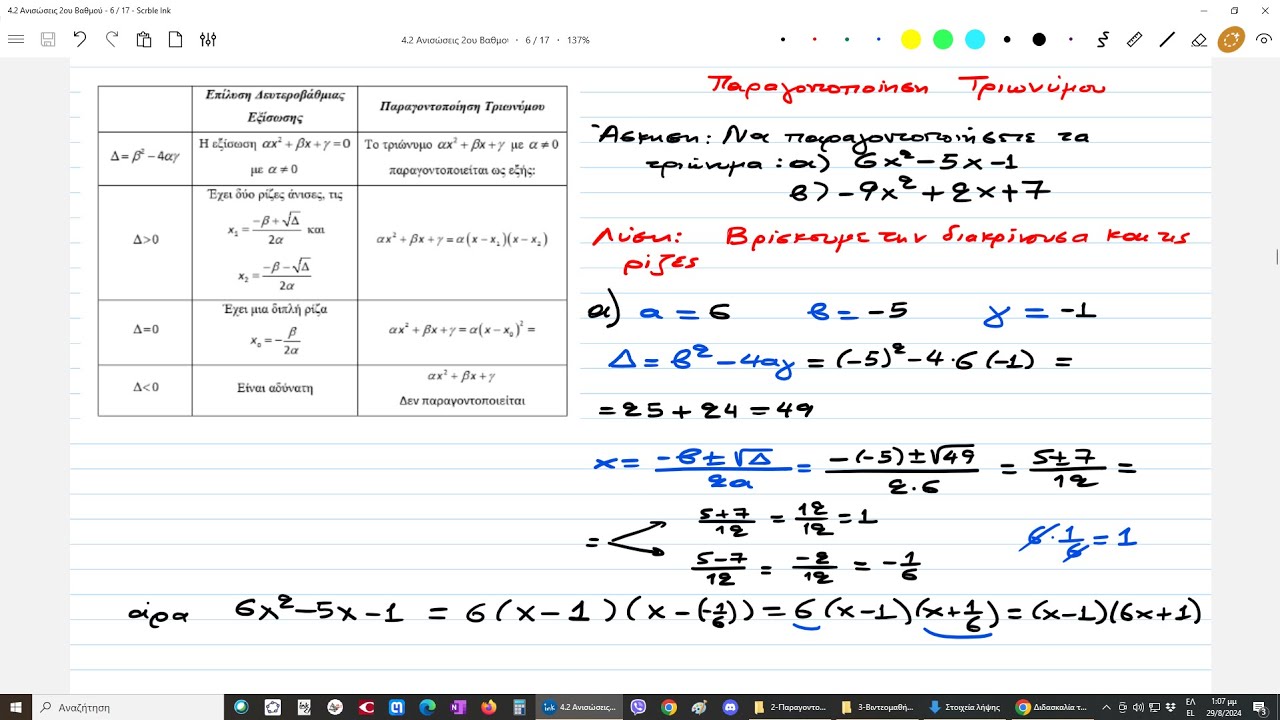 4.2 Ανισώσεις 2ου Βαθμού - 6 / 17 - Scrble Ink
4.2 Ανισώσεις 2ου Βαθμοι · 6 / 17 · 137%
Επίλυση Δευτεροβάθμιας Εξίσωσης
Παραγοντοποίηση Τριωνύμου
Δ = β² − 4αγ
Η εξίσωση αx² + βx + γ = 0
με α ≠ 0
Το τριώνυμο αx² + βx + γ με α ≠ 0
παραγοντοποιείται ως εξής:
Δ>0
Έχει δύο ρίζες άνισες, τις
x₁ = (−β + √Δ)/2α και
x₂ = (−β − √Δ)/2α
αx² + βx + γ = α(x − x₁)(x − x₂)
Δ=0
Έχει μια διπλή ρίζα
x₀ = −β/2α
αx² + βx + γ = α(x − x₀)² =
Δ<0
Είναι αδύνατη
αx² + βx + γ
Δεν παραγοντοποιείται
Παραγοντοποίηση Τριωνύμου
Άσκηση: Να παραγοντοποιήσετε τα
τριώνυμα: α) 6x² − 5x − 1
β) −9x² + 2x + 7
Λύση: Βρίσκουμε την διακρίνουσα και τις
ρίζες
α) α = 6 β = −5 γ = −1
Δ = β² − 4αγ = (−5)² − 4·6(−1) =
= 25 + 24 = 49
x = (−β ± √Δ)/2α = (−(−5) ± √49)/2·6 = (5 ± 7)/12 =
= (5+7)/12 = 12/12 = 1
6 · 1/6 = 1
(5−7)/12 = −2/12 = −1/6
άρα 6x² − 5x − 1 = 6(x − 1)(x − (−1/6)) = 6(x − 1)(x + 1/6) = (x − 1)(6x + 1)
Αναζήτηση
4.2 Ανισώσεις...
2-Παραγοντο...
3-Βιντεομαθή...
Στοιχεία λήψης
Διδασκαλία τ...
ΕΛ
EL
1:07 μμ
29/8/2024